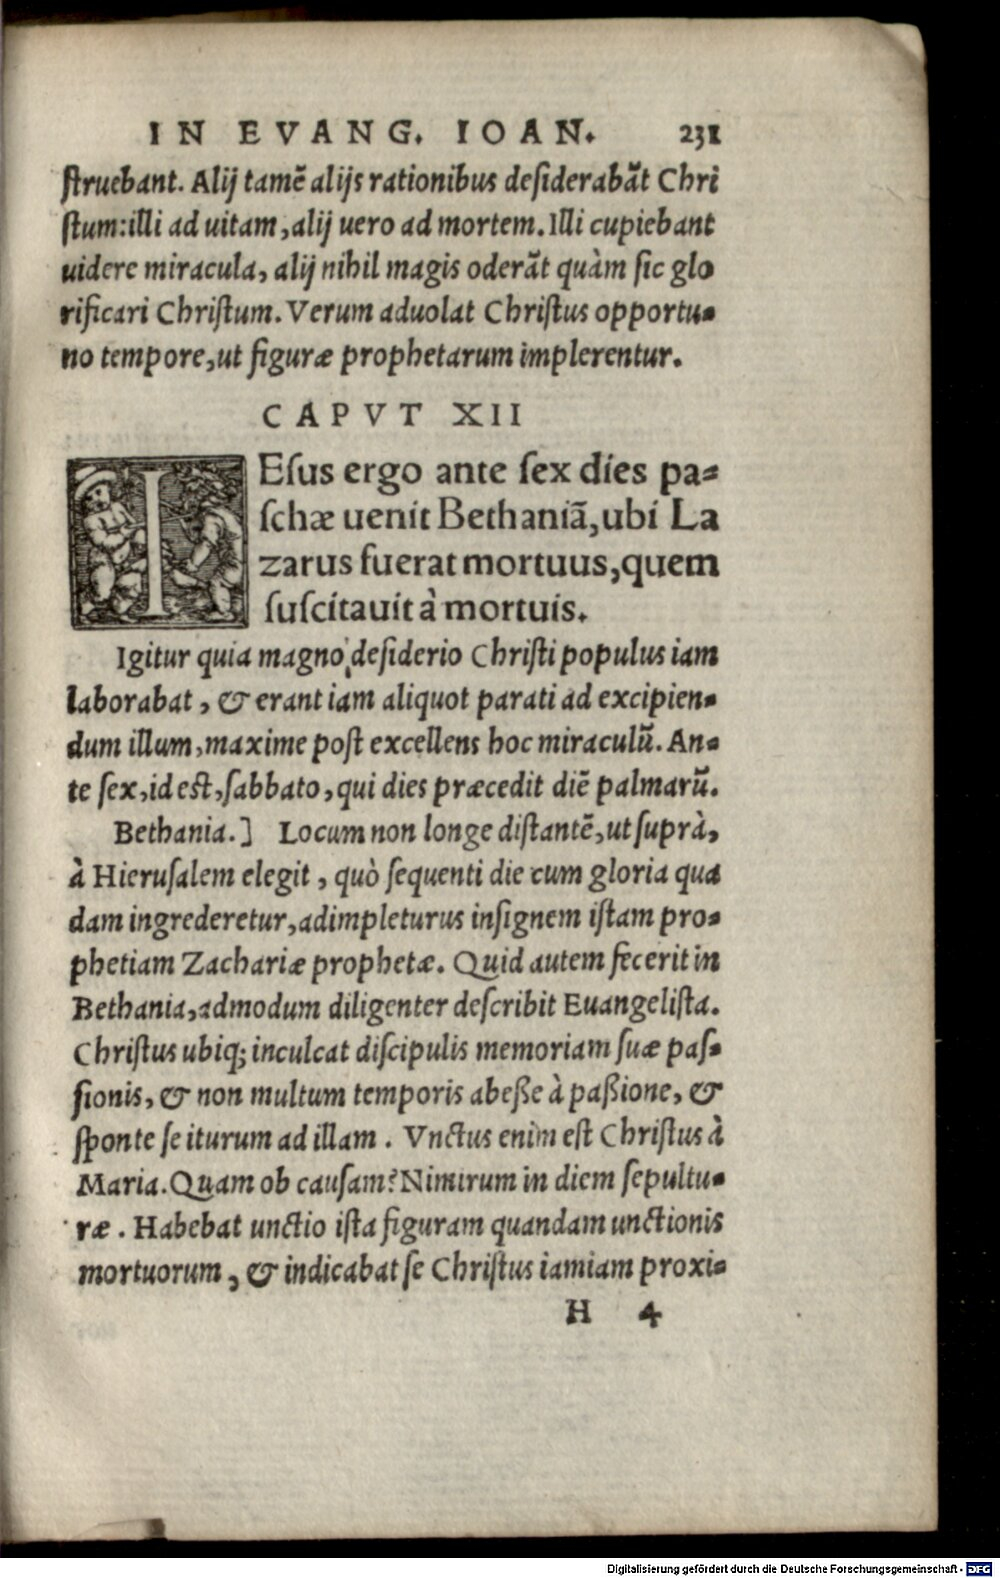 IN EVANG. IOAN. 231
ſtruebant. Alij tamē alijs rationibus deſiderabāt Chri
ſtum: illi ad uitam, alij uero ad mortem. Illi cupiebant
uidere miracula, alij nihil magis oderāt quàm ſic glo
rificari Chriſtum. Verum aduolat Chriſtus opportu-
no tempore, ut figuræ prophetarum implerentur.
CAPVT XII
IEſus ergo ante ſex dies pa-
ſchæ uenit Bethaniā, ubi La
zarus fuerat mortuus, quem
ſuſcitauit à mortuis.
Igitur quia magno deſiderio Chriſti populus iam
laborabat, & erant iam aliquot parati ad excipien-
dum illum, maxime poſt excellens hoc miraculū. An-
te ſex, id eſt, ſabbato, qui dies præcedit diē palmarū.
Bethania.] Locum non longe diſtantē, ut ſuprà,
à Hieruſalem elegit, quò ſequenti die cum gloria qua
dam ingrederetur, adimpleturus inſignem iſtam pro-
phetiam Zachariæ prophetæ. Quid autem fecerit in
Bethania, admodum diligenter deſcribit Euangeliſta.
Chriſtus ubiq; inculcat diſcipulis memoriam ſuæ paſ-
ſionis, & non multum temporis abeße à paßione, &
ſponte ſe iturum ad illam. Vnctus enim eſt Chriſtus à
Maria. Quam ob cauſam? Nimirum in diem ſepultu-
ræ. Habebat unctio iſta figuram quandam unctionis
mortuorum, & indicabat ſe Chriſtus iamiam proxi-
H 4
Digitalisierung gefördert durch die Deutsche Forschungsgemeinschaft - DFG